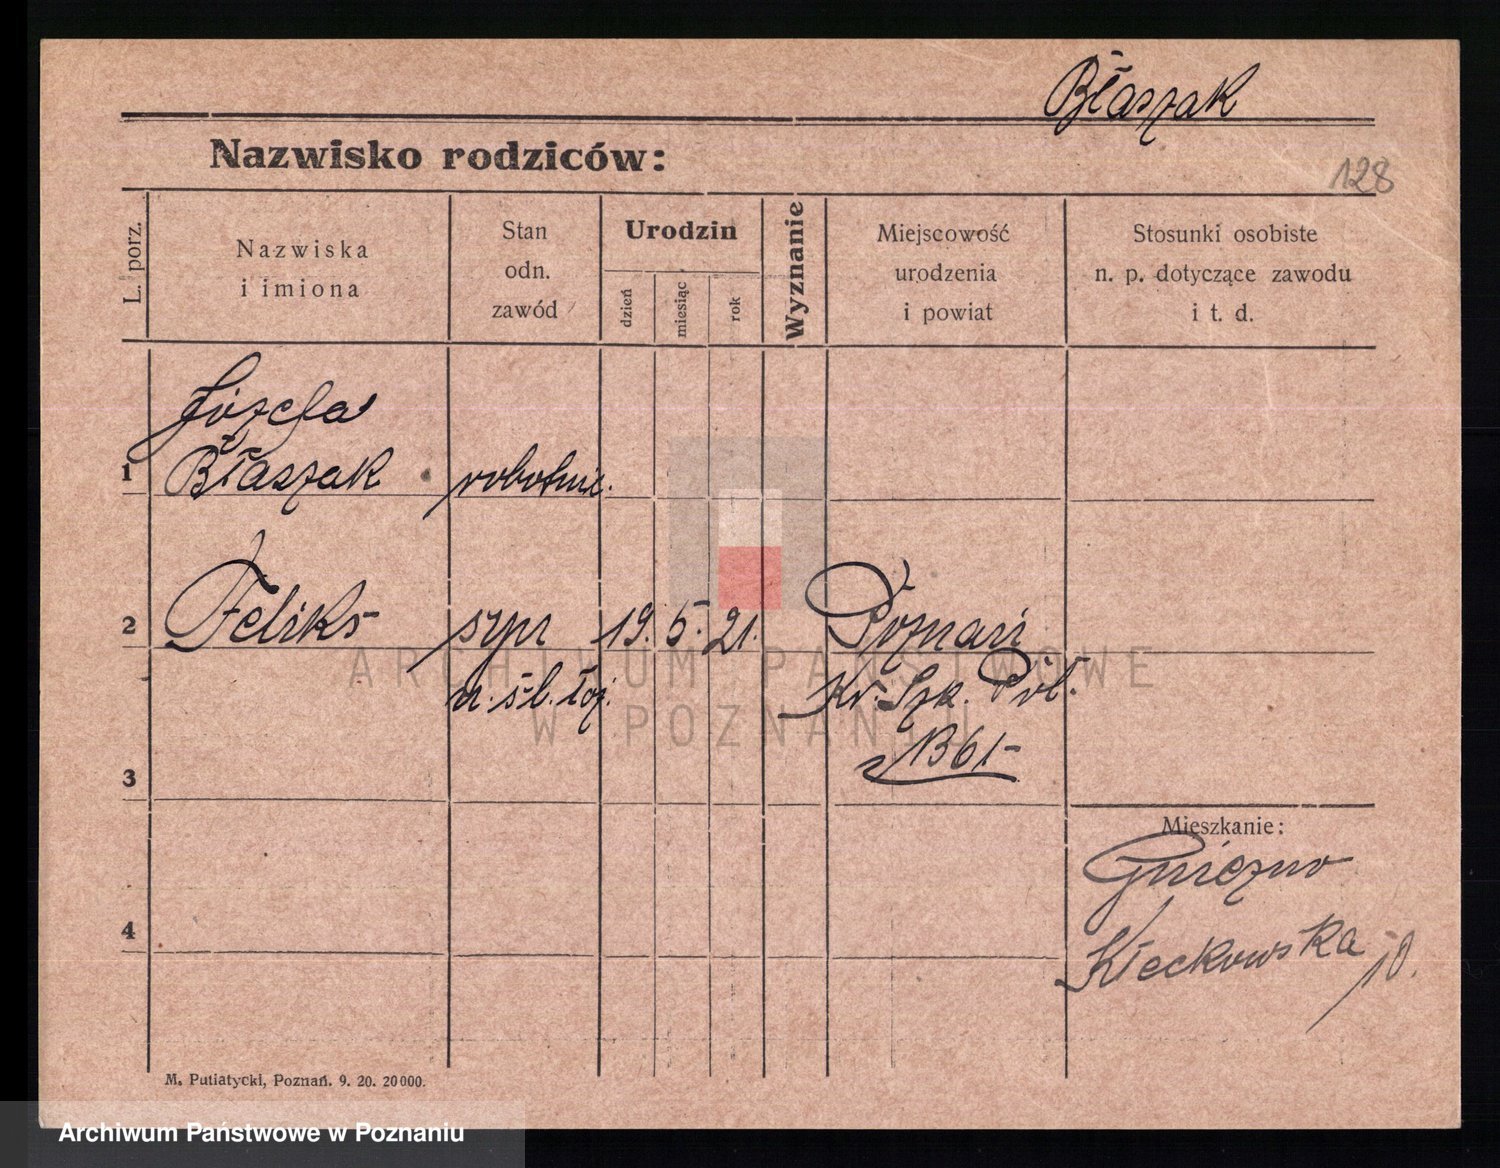 Błaszak
Nazwisko rodziców:
128
L. porz.
Nazwiska
i imiona
Stan
odn.
zawód
Urodzin
dzień
miesiąc
rok
Wyznanie
Miejscowość
urodzenia
i powiat
Stosunki osobiste
n. p. dotyczące zawodu
i t. d.
Józefa
1 Błaszak robotnic.
2 Feliks syn 19. 5. 21. Poznań
n. śl. toż. Kr. Szk. Poł.
1361-
3
Mieszkanie:
Gniezno
4
Kłeckowska 10.
M. Putiatycki, Poznań. 9. 20. 20000.
ARCHIWUM PAŃSTWOWE
W POZNANIU
Archiwum Państwowe w Poznaniu